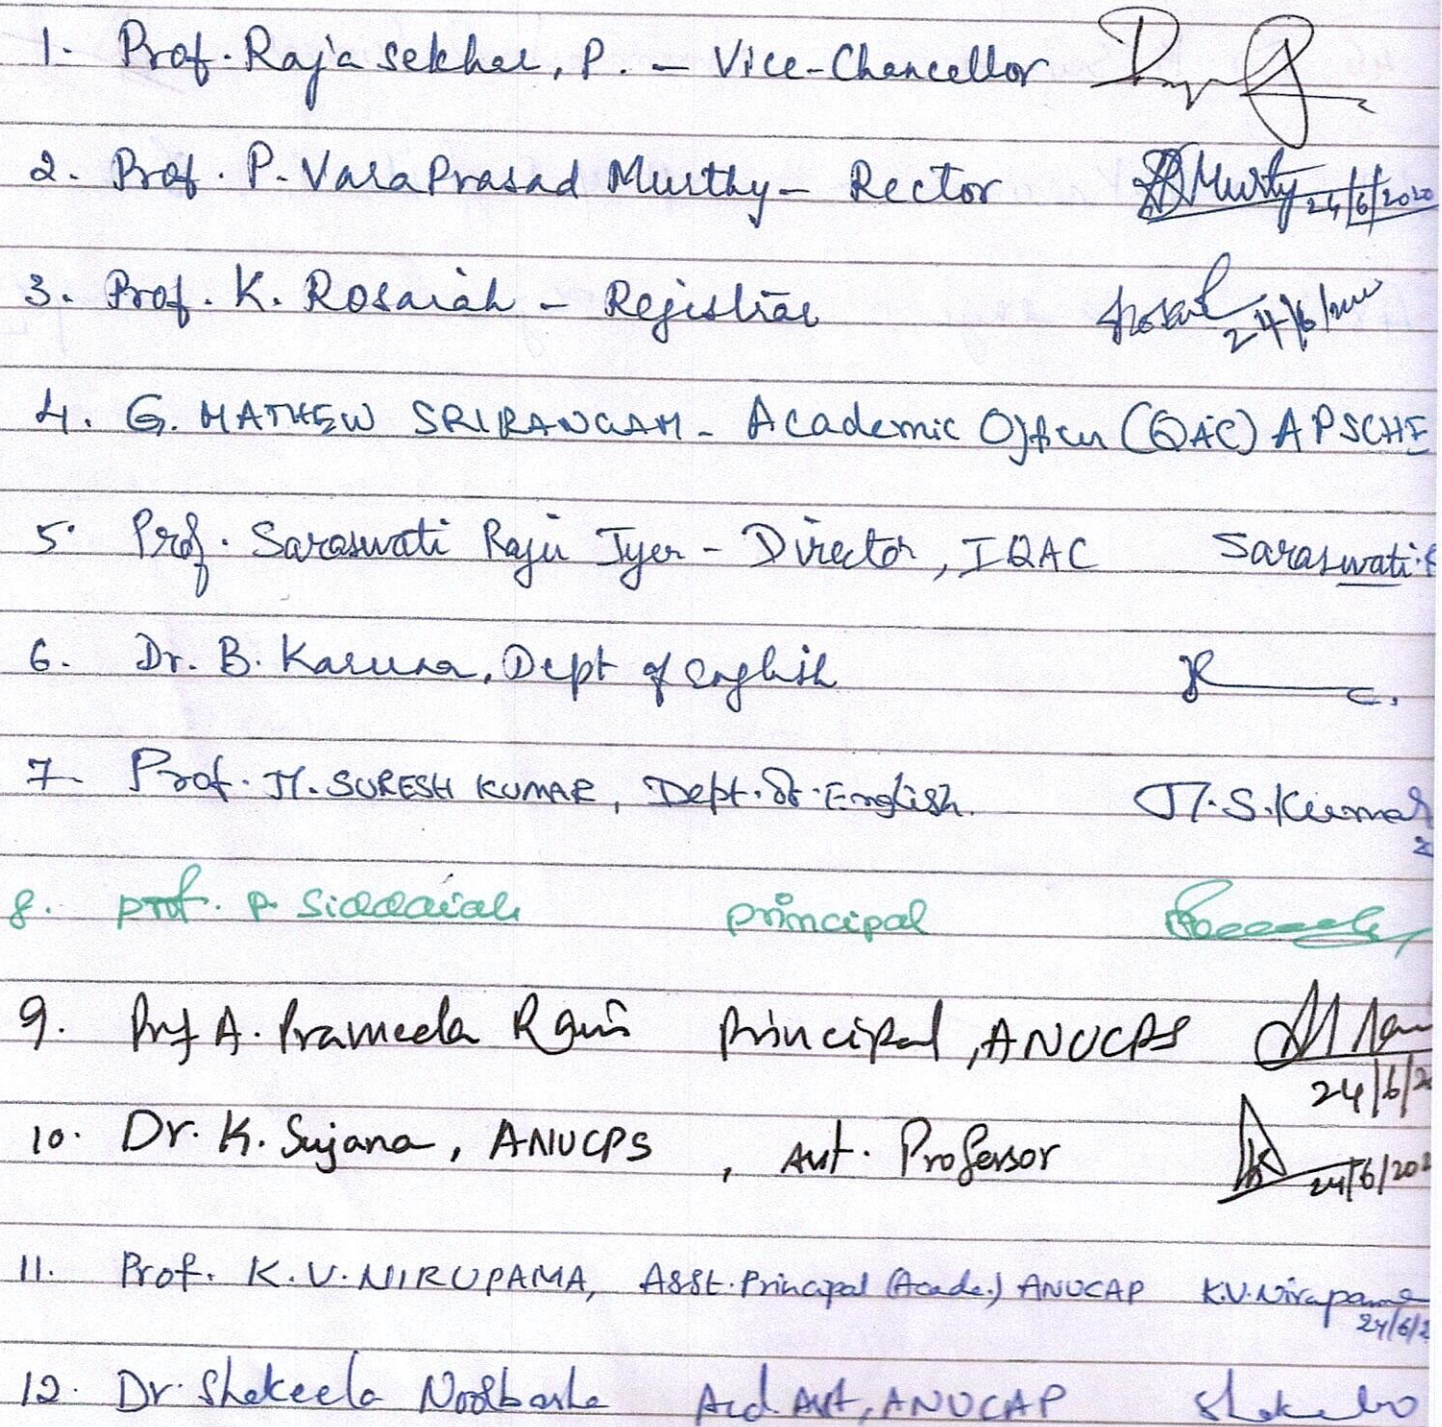 1. Prof. Raja Sekhar, P. – Vice-Chancellor
2. Prof. P. VaraPrasad Murthy – Rector Murty 24/6/2020
3. Prof. K. Rosaiah – Registrar 24/6/2020
4. G. MATHEW SRIRANGAM - Academic Officer (QAC) APSCHE
5. Prof. Saraswati Raju Iyer - Director, IQAC Saraswati
6. Dr. B. Karuna, Dept of English
7. Prof. M. SURESH KUMAR, Dept. of. English. M.S.Kumar
8. prof. P. Siddaiah principal
9. Prof A. Prameela Rani Principal, ANUCPS
24/6/2
10. Dr. K. Sujana, ANUCPS, Asst. Professor 24/6/202
11. Prof. K.V. NIRUPAMA, Asst. Principal (Acade.) ANUCAP K.V.Nirupama
24/6/2
12. Dr. Shakeela Noorbasha Acd. Asst, ANUCAP